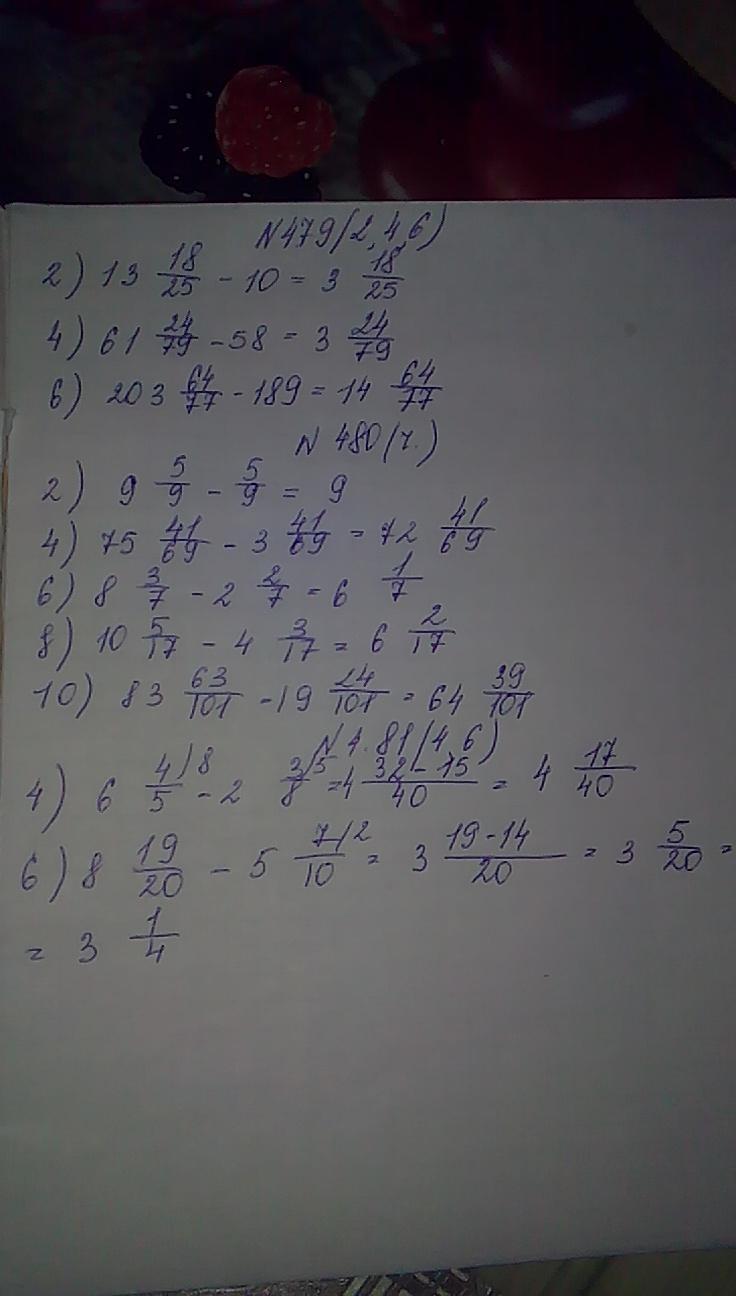 N479(2,4,6)
2) 13 18/25 - 10 = 3 18/25
4) 61 24/79 - 58 = 3 24/79
6) 203 64/77 - 189 = 14 64/77
N 480(ч.)
2) 9 5/9 - 5/9 = 9
4) 75 41/69 - 3 41/69 = 72 41/69
6) 8 3/7 - 2 2/7 = 6 1/7
8) 10 5/17 - 4 3/17 = 6 2/17
10) 83 63/101 - 19 24/101 = 64 39/101
N 4.81(4,6)
4) 6 4/5 /8 - 2 3/8 /5 = 4 32-15/40 = 4 17/40
6) 8 19/20 - 5 7/10 /2 = 3 19-14/20 = 3 5/20 =
= 3 1/4